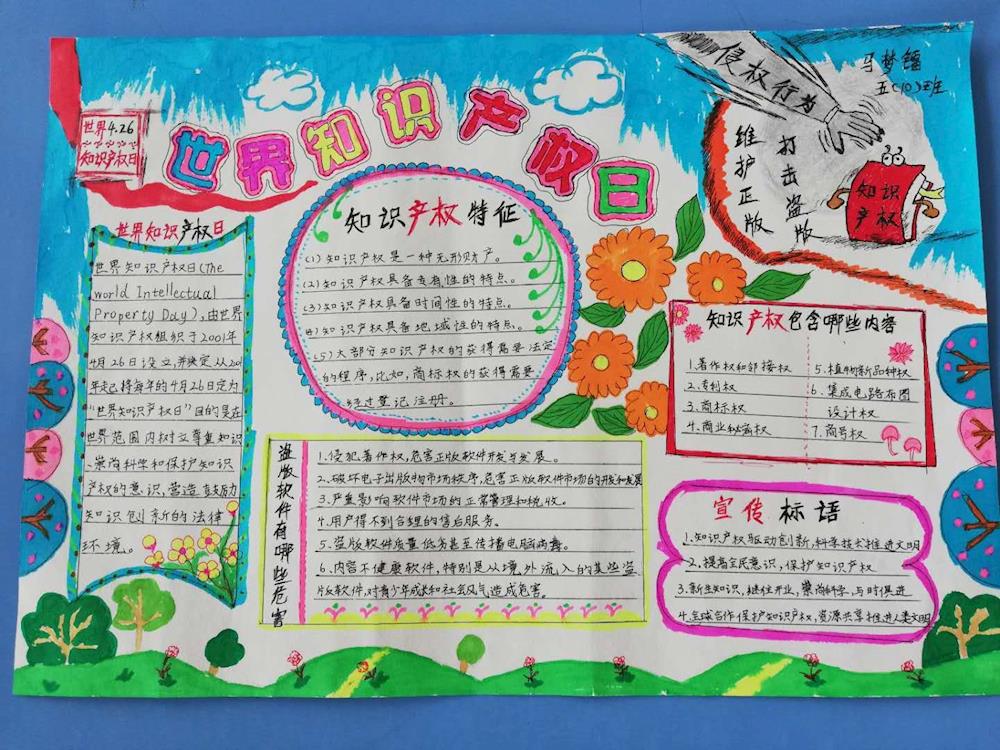 世界4.26
知识产权日
世界知识产权日
侵权行为
维护正版
打击盗版
知识
产权
马梦
五(10)班
世界知识产权日
世界知识产权日(The
world Intellectual
Property Day),由世界
知识产权组织于2001年
4月26日设立,并决定从2001
年起将每年的4月26日定为
“世界知识产权日”目的是在
世界范围内树立尊重知识
、崇尚科学和保护知识
产权的意识,营造鼓励
知识创新的法律
环境。
知识产权特征
(1)知识产权是一种无形财产。
(2)知识产权具备专有性的特点。
(3)知识产权具备时间性的特点。
(4)知识产权具备地域性的特点。
(5)大部分知识产权的获得需要法定
的程序,比如,商标权的获得需要
经过登记注册。
知识产权包含哪些内容
1.著作权和邻接权
2.专利权
3.商标权
4.商业秘密权
5.植物新品种权
6.集成电路布图
设计权
7.商号权
盗版软件有哪些危害
1.侵犯著作权,危害正版软件开发与发展。
2.破坏电子出版物市场秩序,危害正版软件市场的开发和发展
3.严重影响软件市场的正常管理和税收。
4.用户得不到合理的售后服务。
5.盗版软件质量低劣甚至传播电脑病毒。
6.内容不健康软件,特别是从境外流入的某些盗
版软件,对青少年成长和社会风气造成危害。
宣传标语
1.知识产权驱动创新,科学技术推进文明
2.提高全民意识,保护知识产权
3.新生知识,继往开业,崇尚科学,与时俱进
4.全球合作保护知识产权,资源共享推进人类文明